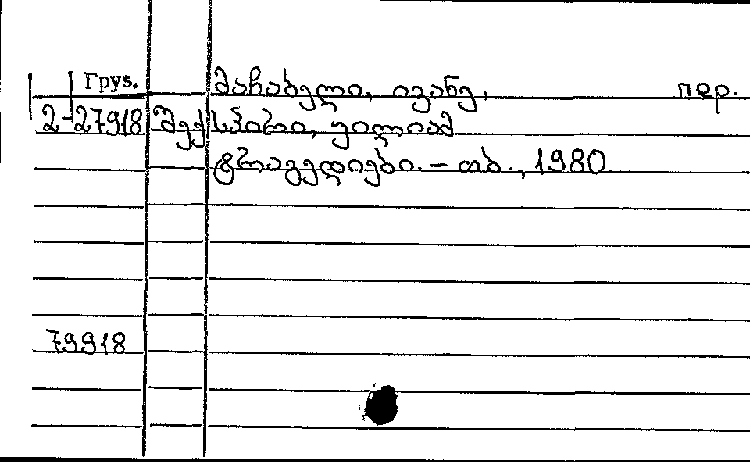 Груз. მაჩაბელი, ივანე, пер.
2-27918 შექსპირი, უილიამ
ტრაგედიები. – თბ., 1980
79918